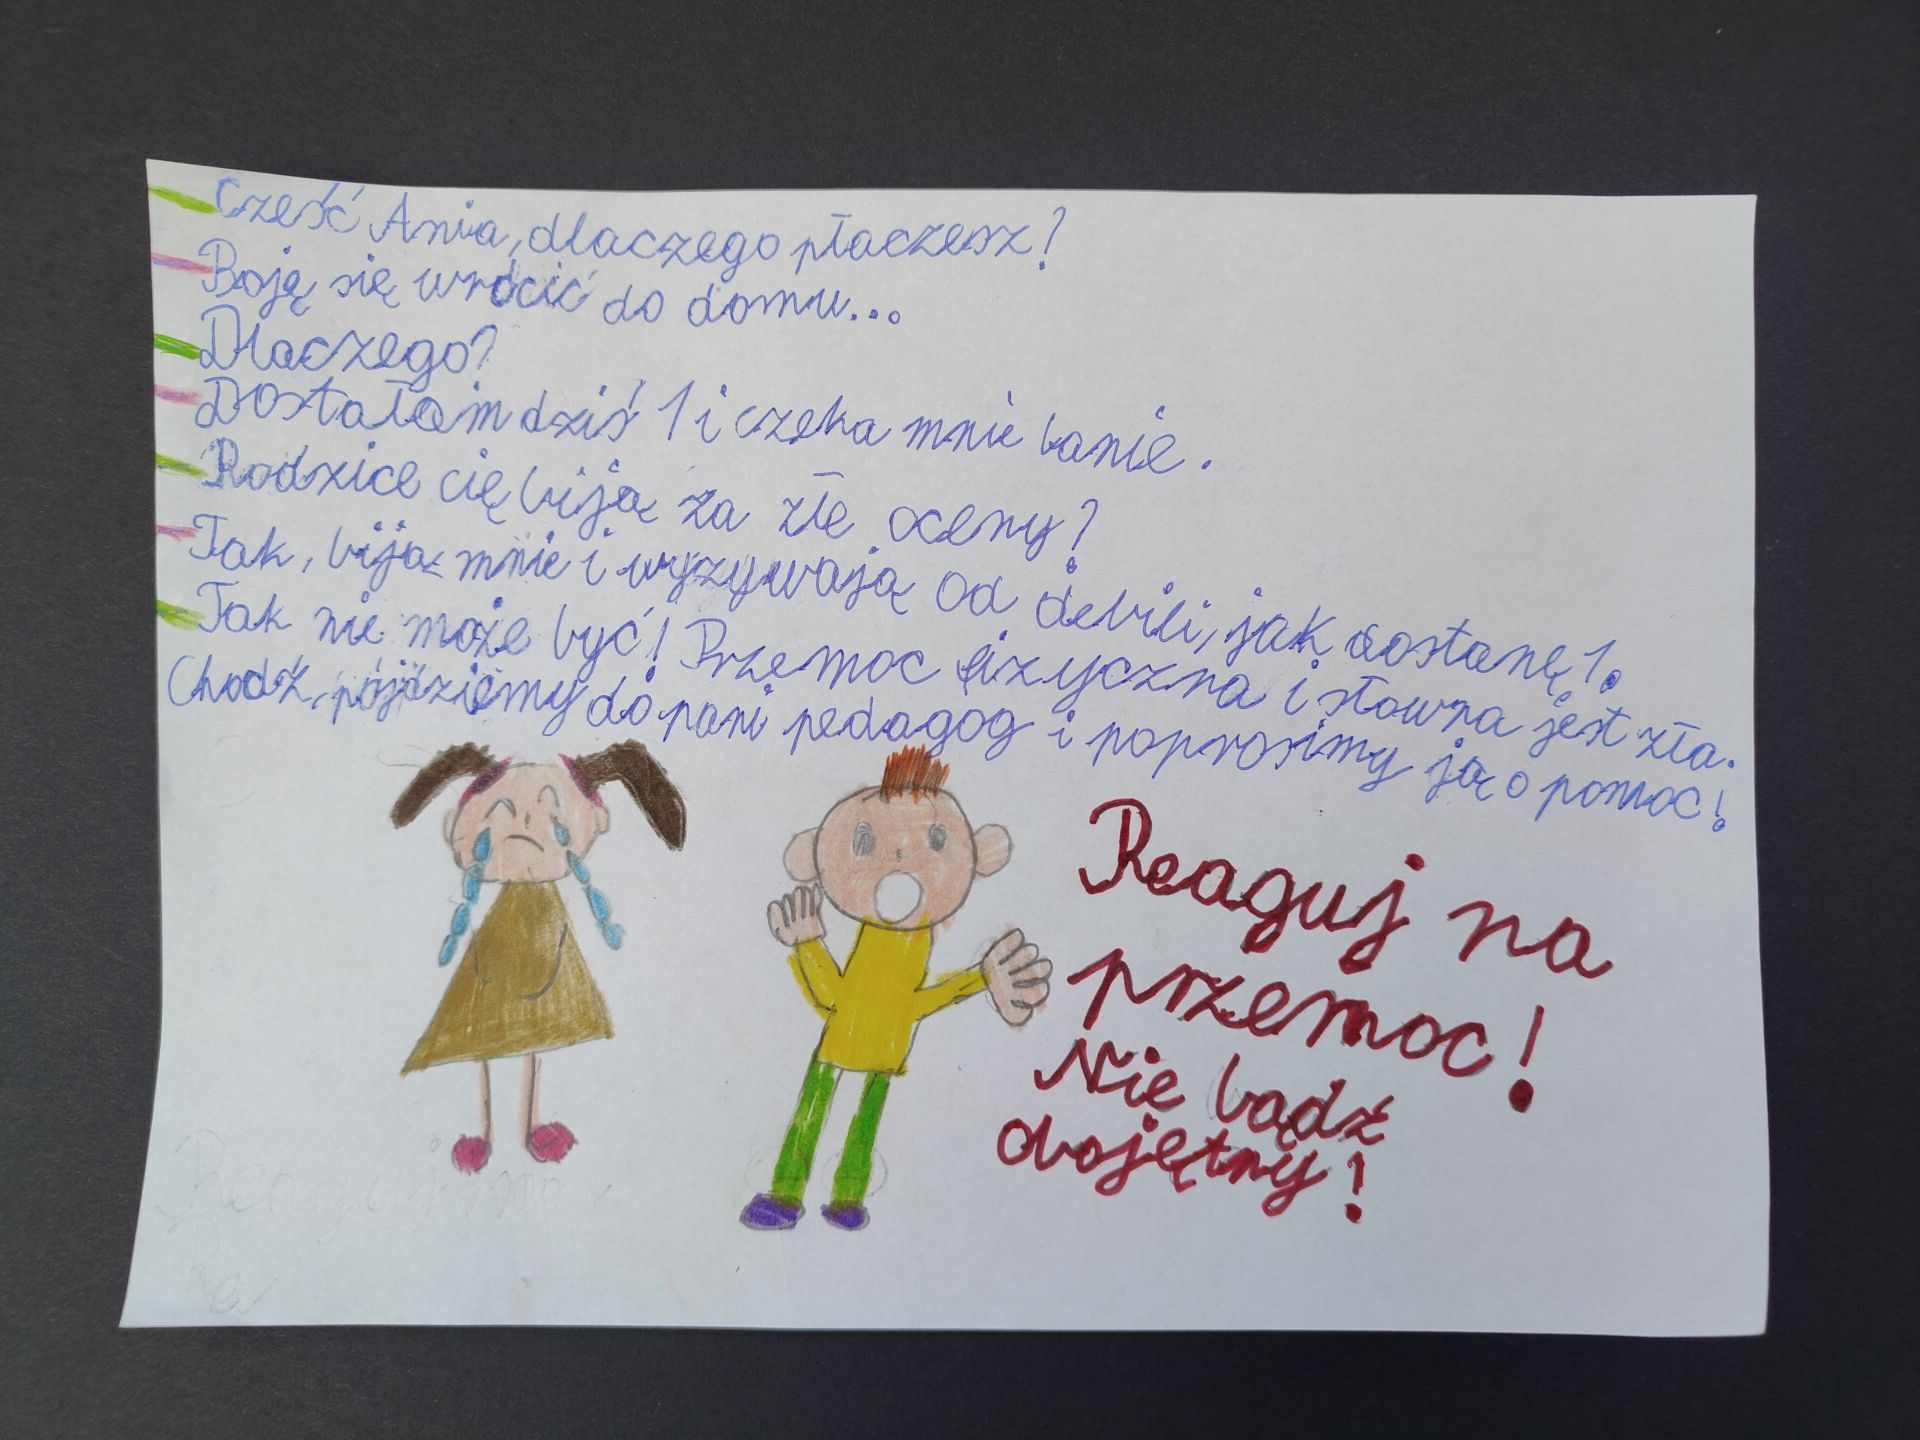 Cześć Ania, dlaczego płaczesz?
Boję się wrócić do domu...
Dlaczego?
Dostałam dziś 1 i czeka mnie lanie.
Rodzice cię biją za złe oceny?
Tak, biją mnie i wyzywają od debili, jak dostanę 1.
Tak nie może być! Przemoc fizyczna i słowna jest zła.
Chodź, pójdziemy do pani pedagog i poprosimy ją o pomoc!
Reaguj na
przemoc!
Nie bądź
obojętny!
Reaguj na
Re